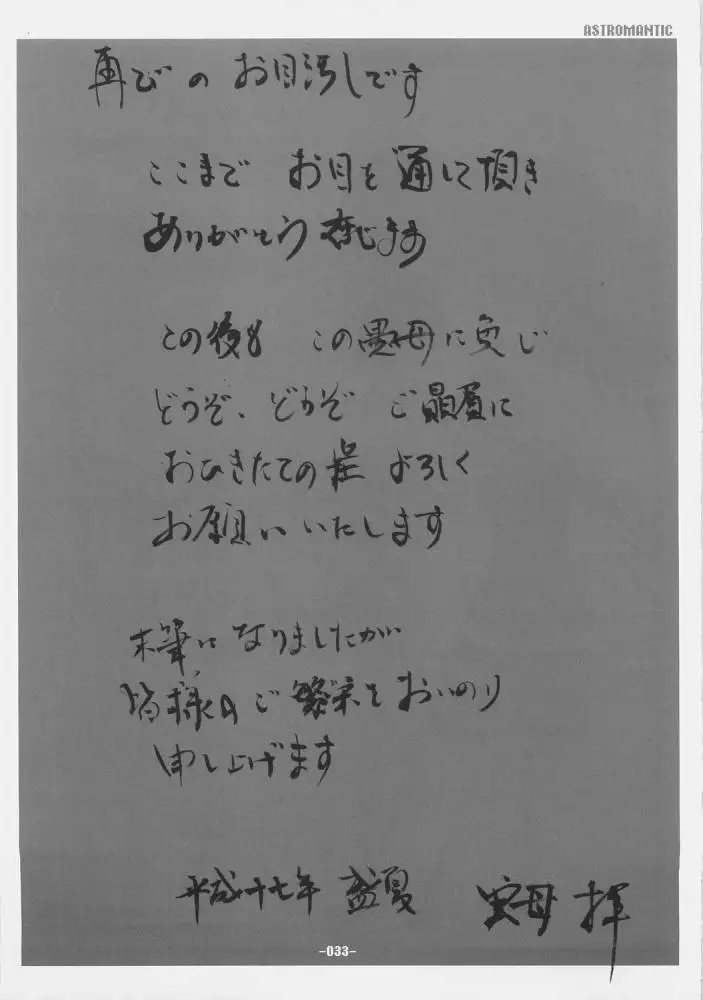 ASTROMANTIC
再びの お目汚しです
ここまで お目を通して頂き
ありがとう存じます
この後も この愚母に免じ
どうぞ、どうぞ ご贔屓に
おひきたての程 よろしく
お願いいたします
末筆になりましたが
皆様の ご繁栄を おいのり
申し上げます
平成十七年 盛夏
実母 拝
-033-